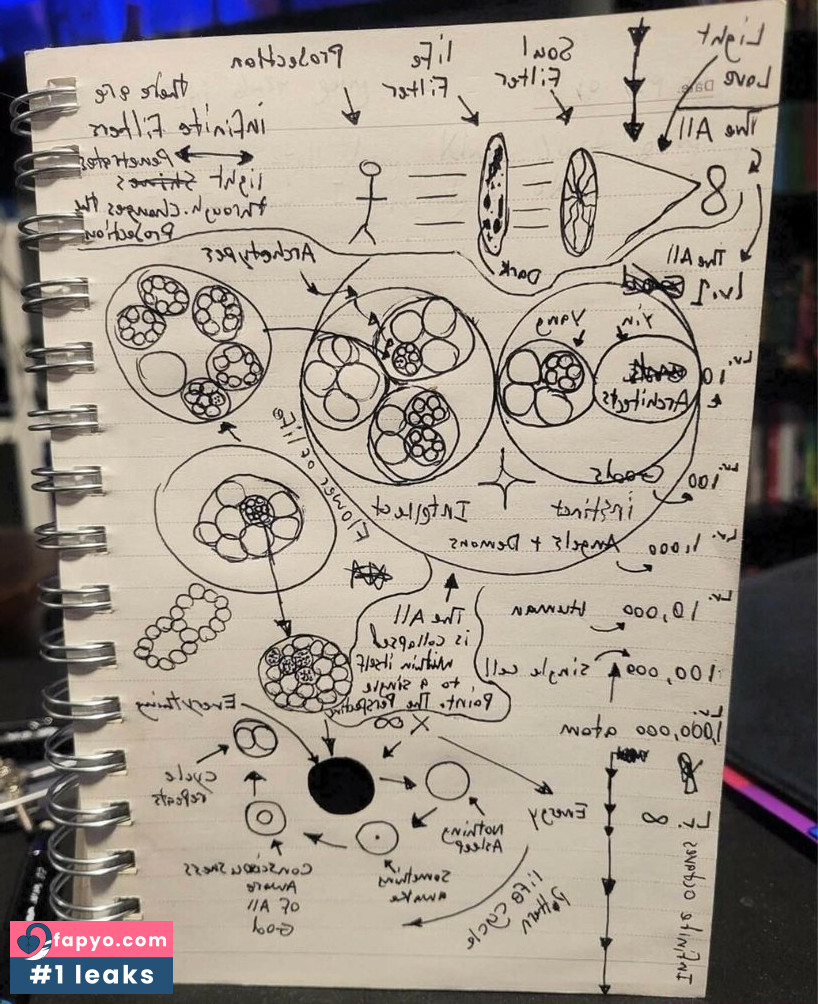 Light
Love
The All
Soul
Filter
life
Filter
Projection
there are
infinite Filters
Penetrates
light Shines
through. changes the
Projection
Date:
8
Dark
The All
Lv. 1
Archetypes
Yin
Yang
Lv.
10
Architects
Lv.
100
Gods
instinct
Intellect
Flower of life
Lv.
1,000
Angels + Demons
Lv.
10,000 Human
100,000 single cell
Lv.
1,000,000 atom
The All
is collapsed
within itself
to a single
Point. The Perspective
Everything
X ∞
cycle
repeats
Nothing
Asleep
Energy
Something
awake
Consciousness
Aware
OF All
God
life cycle
pattern
8
Infinite octaves
fapyo.com
#1 leaks